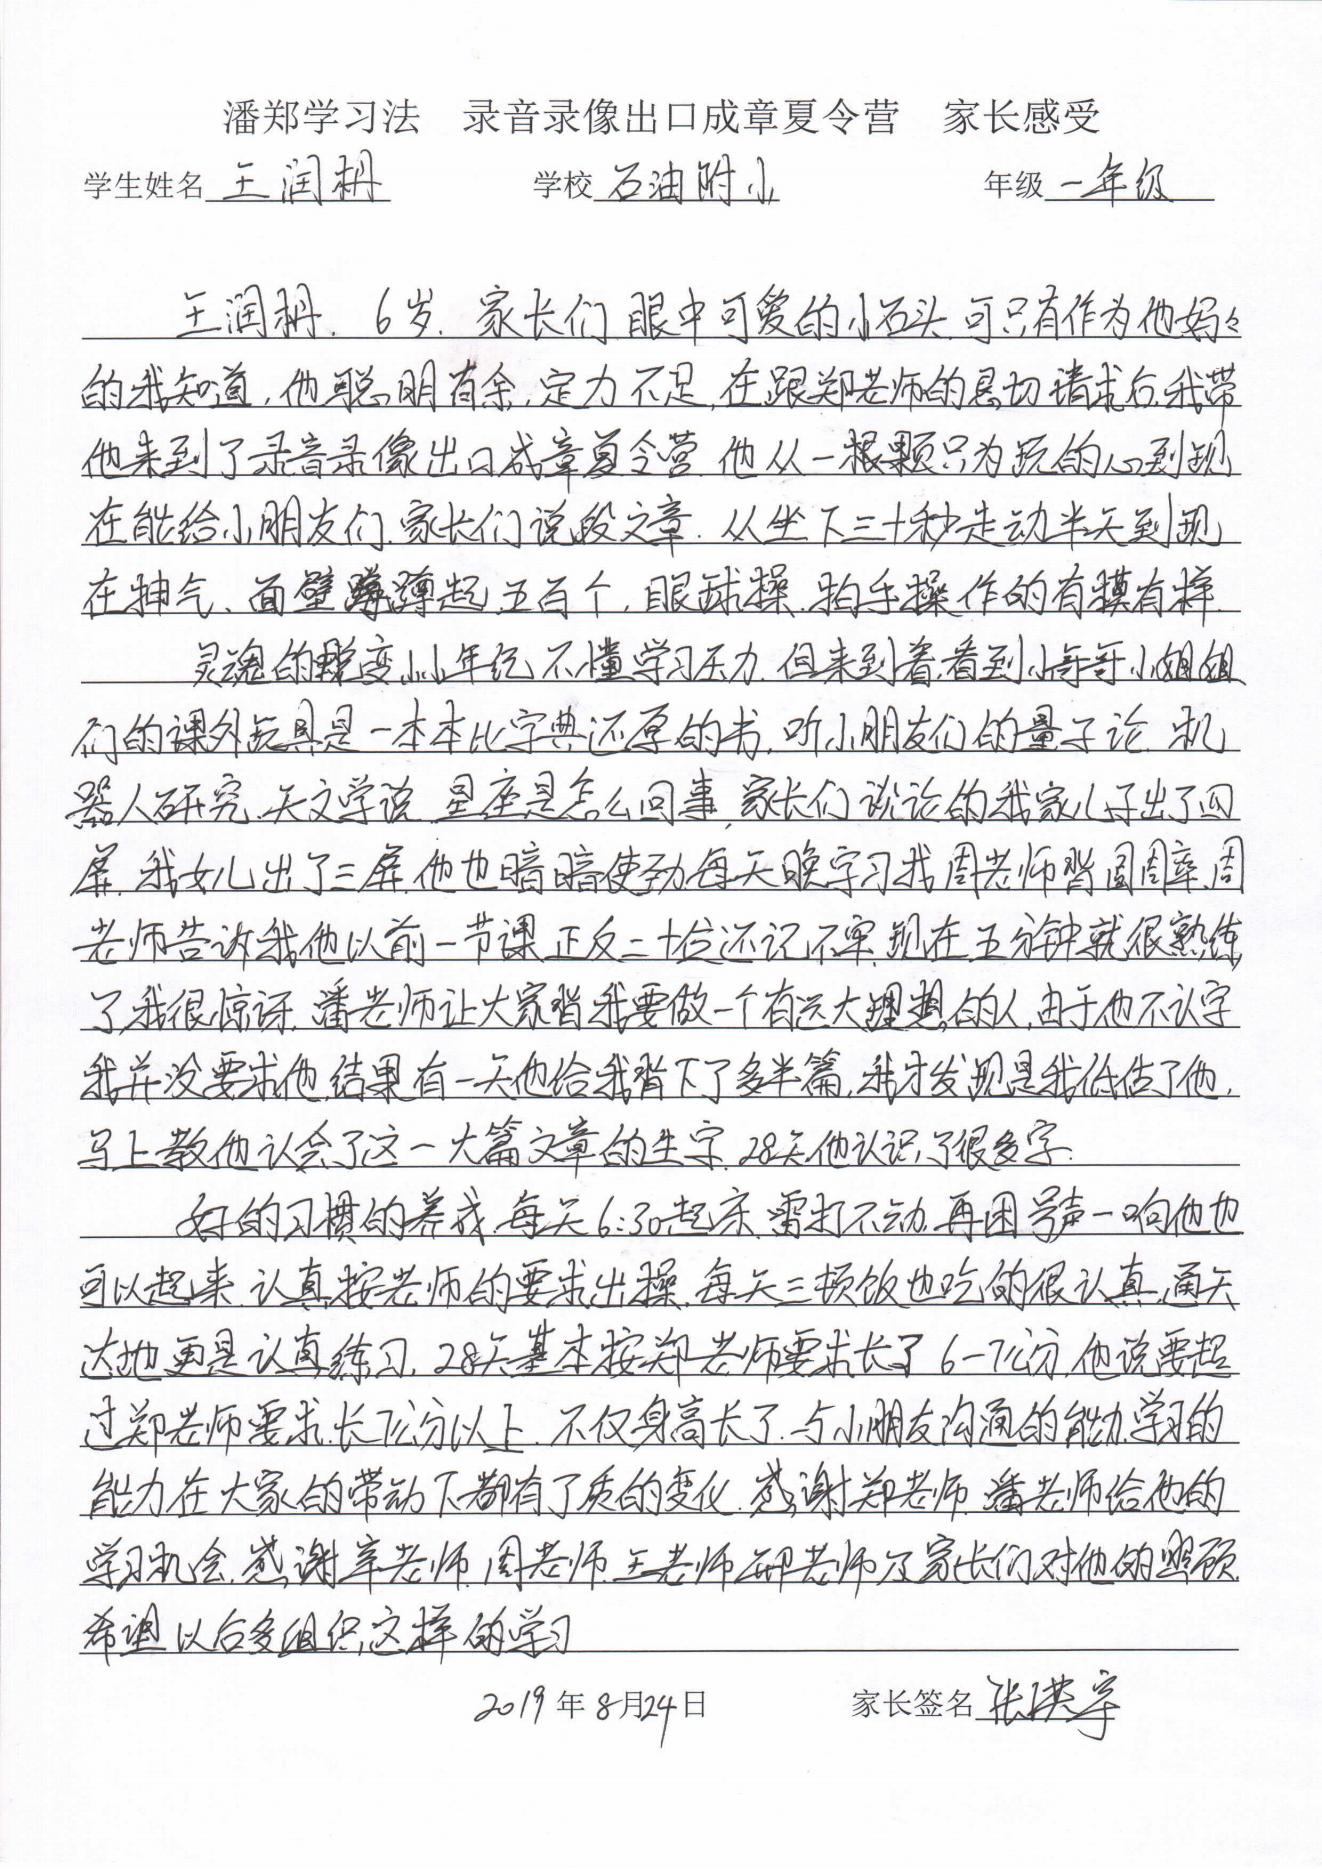 潘郑学习法 录音录像出口成章夏令营 家长感受
学生姓名 王润枬 学校 石油附小 年级 一年级
王润枬、6岁.家长们眼中可爱的小石头.可只有作为他妈々
的我知道,他聪明有余,定力不足,在跟郑老师的恳切请求后,我带
他来到了录音录像出口成章夏令营.他从一根颗只为玩的心到现
在能给小朋友们.家长们说段文章.从坐下三十秒走动半天到现
在抽气、面壁蹲起.五百个,眼球操.拍手操作的有模有样.
灵魂的蜕变,小小年纪不懂学习压力.但来到着,看到小哥哥小姐姐
们的课外玩具是一本本比字典还厚的书,听小朋友们的量子论.机
器人研究.天文学说.星座是怎么回事,家长们谈论的我家儿子出了四
屏.我女儿出了三屏.他也暗暗使劲,每天晚字习找周老师背圆周率.周
老师告诉我他以前一节课正反二十位还记不牢.现在五分钟就很熟练
了,我很惊讶.潘老师让大家背我要做一个有远大理想的人,由于他不认字
我并没要求他,结果有一天他给我背下了多半篇,我才发现是我低估了他,
马上教他认会了这一大篇文章的生字.28天他认识了很多字.
好的习惯的养成.每天6:30起床.雷打不动.再困号声一响他也
可以起来.认真按老师的要求出操.每天三顿饭也吃的很认真,通天
达地更是认真练习,28天基本按郑老师要求长了6-7公分,他说要超
过郑老师要求.长7公分以上.不仅身高长了.与小朋友沟通的能力.学习的
能力在大家的带动下都有了质的变化.感谢郑老师.潘老师给他的
学习机会.感谢辛老师.周老师.王老师.邢老师及家长们对他的照顾.
希望以后多组织这样的学习
2019年8月24日 家长签名 张洪宇